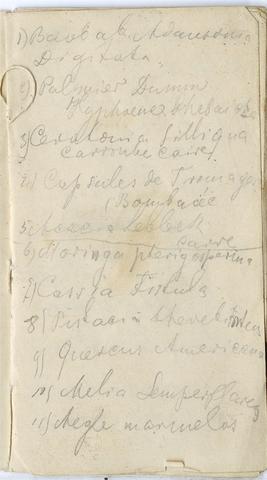 1) Baobab Adansonia
Digitata
2) Palmier Dumm
Hyphaene thebaica
3) Ceratonia Silliqua
Carroube Caire
4) Capsules de Fromager
(Bombacée
5) Acacia lebbek
Caire
6) Moringa pterigosperma
7) Cassia Fistula
8)
9) Quercus Americana
10) Melia Semperflorens
11) Aegle marmelos